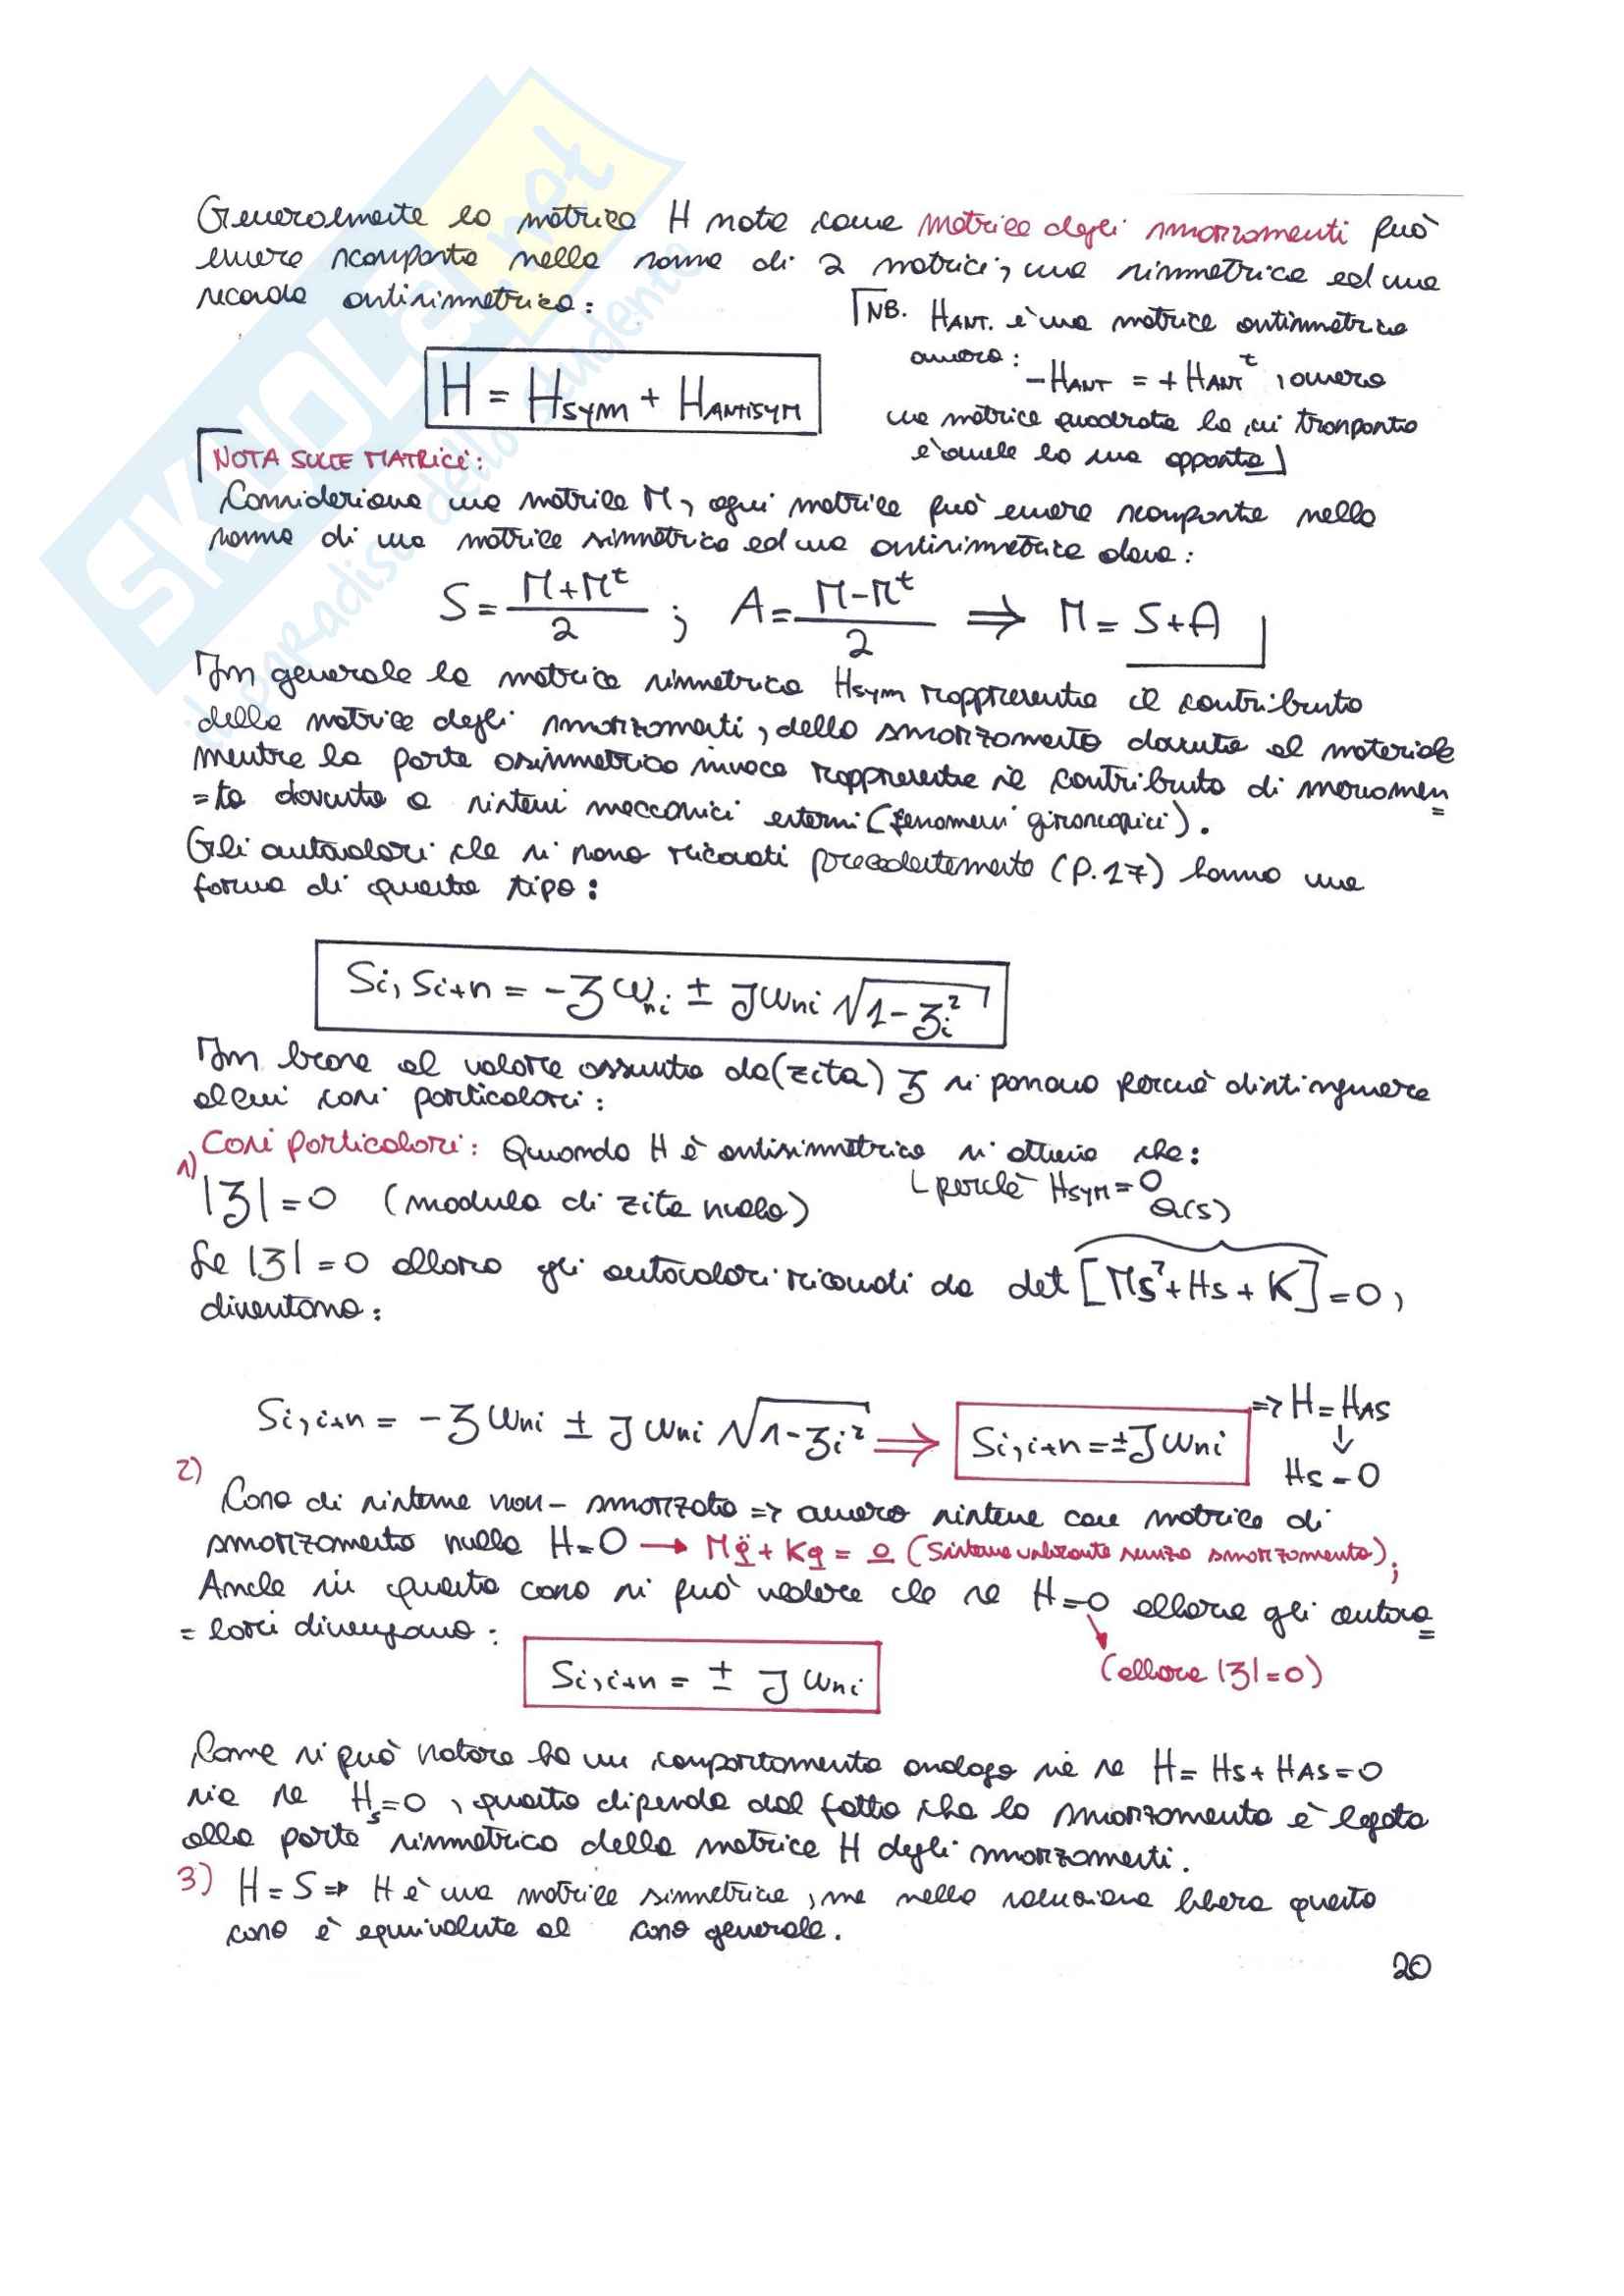 Generalmente la matrice H nota come matrice degli smorzamenti può
essere scomposta nella somma di 2 matrici, una simmetrica ed una
seconda antisimmetrica:
NB. HANT. è una matrice antisimmetrica
ovvero: -HANT = +HANTᵗ, ovvero
una matrice quadrata la cui trasposta
è anche la sua opposta
H = Hsym + HANTISYM
NOTA SULLE MATRICI:
Consideriamo una matrice M, ogni matrice può essere scomposta nella
somma di una matrice simmetrica ed una antisimmetrica dove:
S = (M+Mᵗ)/2 ; A = (M-Mᵗ)/2 ⇒ M = S+A
In generale la matrice simmetrica Hsym rappresenta il contributo
della matrice degli smorzamenti, dello smorzamento dovuto al materiale
mentre la parte asimmetrica invece rappresenta il contributo di
=to dovuto a sistemi meccanici esterni (fenomeni giroscopici).
Gli autovalori che si sono ricavati precedentemente (p.17) hanno una
forma di questo tipo:
Si, Si+n = -ζ ωni ± J ωni √1-ζi²
In base al valore assunto da (zita) ζ si possono perciò distinguere
alcuni casi particolari:
1) Casi particolari: Quando H è antisimmetrica si ottiene che:
perchè Hsym = 0
|ζ| = 0 (modulo di zita nullo)
Q(s)
Se |ζ| = 0 allora gli autovalori ricavati da det [Ms²+Hs+K] = 0,
diventano:
Si,i+n = -ζ ωni ± J ωni √1-ζi² ⇒ Si,i+n = ± J ωni ⇒ H = HAS
↓
HS = 0
2) Caso di sistema non-smorzato ⇒ ovvero sistema con matrice di
smorzamento nulla H=0 → Mq̈ + Kq = 0 (Sistema vibrante senza smorzamento);
Anche in questo caso si può vedere che se H=0 allora gli autova
=lori divengono:
(allora |ζ|=0)
Si,i+n = ± J ωni
Come si può notare ho un comportamento analogo sia se H = HS + HAS = 0
sia se Hs=0, questo dipende dal fatto che lo smorzamento è legato
alla parte simmetrica della matrice H degli smorzamenti.
3) H = S ⇒ H è una matrice simmetrica, ma nella soluzione libera questo
caso è equivalente al caso generale.
20
SKUOLA.net
il paradiso dello studente